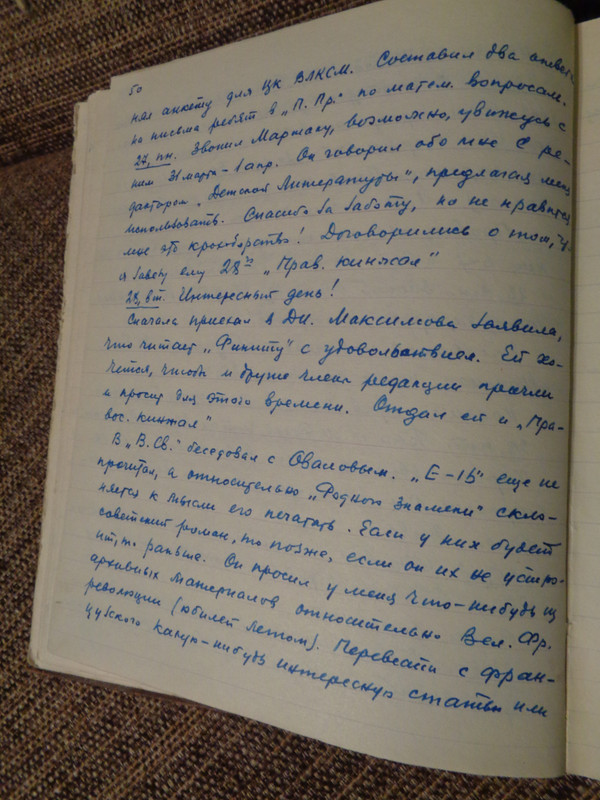 50
ная анкету для ЦК ВЛКСМ. Составил два ответ-
на письма ребят в „П. Пр." по матем. вопросам.
27, пн. Звонил Маршаку, возможно, увижусь с
ним 31 марта - 1 апр. Он говорил обо мне с ре-
дактором „Детской Литературы", предлагая меня
использовать. Спасибо за заботу, но не нравится
мне это крохоборство! Договорились о том, что
я завезу ему 28го „Прав. кинжал"
28, вт. Интересный день!
Сначала приехал в ДИ. Максимова заявила,
что читает „Финиту" с удовольствием. Ей хо-
чется, чтобы и другие члены редакции прочли
и просит для этого времени. Отдал ей и „Пра-
вос. кинжал"
В „В. Св." беседовал с Оваловым. „Е-15" еще не
прочитал, а относительно „Родного знамени" скло-
няется к мысли его печатать. Если у них будет
советский роман, то позже, если он их не устро-
ит, то раньше. Он просил у меня что-нибудь из
архивных материалов относительно Вел. Фр.
революции (юбилей летом). Перевести с фран-
цузского какую-нибудь интересную статью или